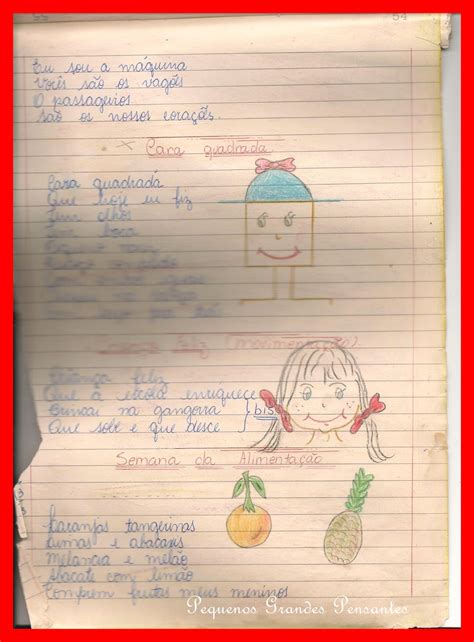 54
Eu sou a máquina
Vocês são os vagões
O passageiros
são os nossos corações.
x Cara quadrada
Cara quadrada
Que hoje eu fiz
Tem olhos
Tem boca
Feliz (movimentação)
Criança feliz
Que a escola enriquece
Brincar na gangorra
Que sobe e que desce
bis
Semana da Alimentação
Laranjas tangerinas
Limas e abacaxis
Melancia e melão
Abacate com limão
Comprem frutas meus meninos
Pequenos Grandes Pensantes